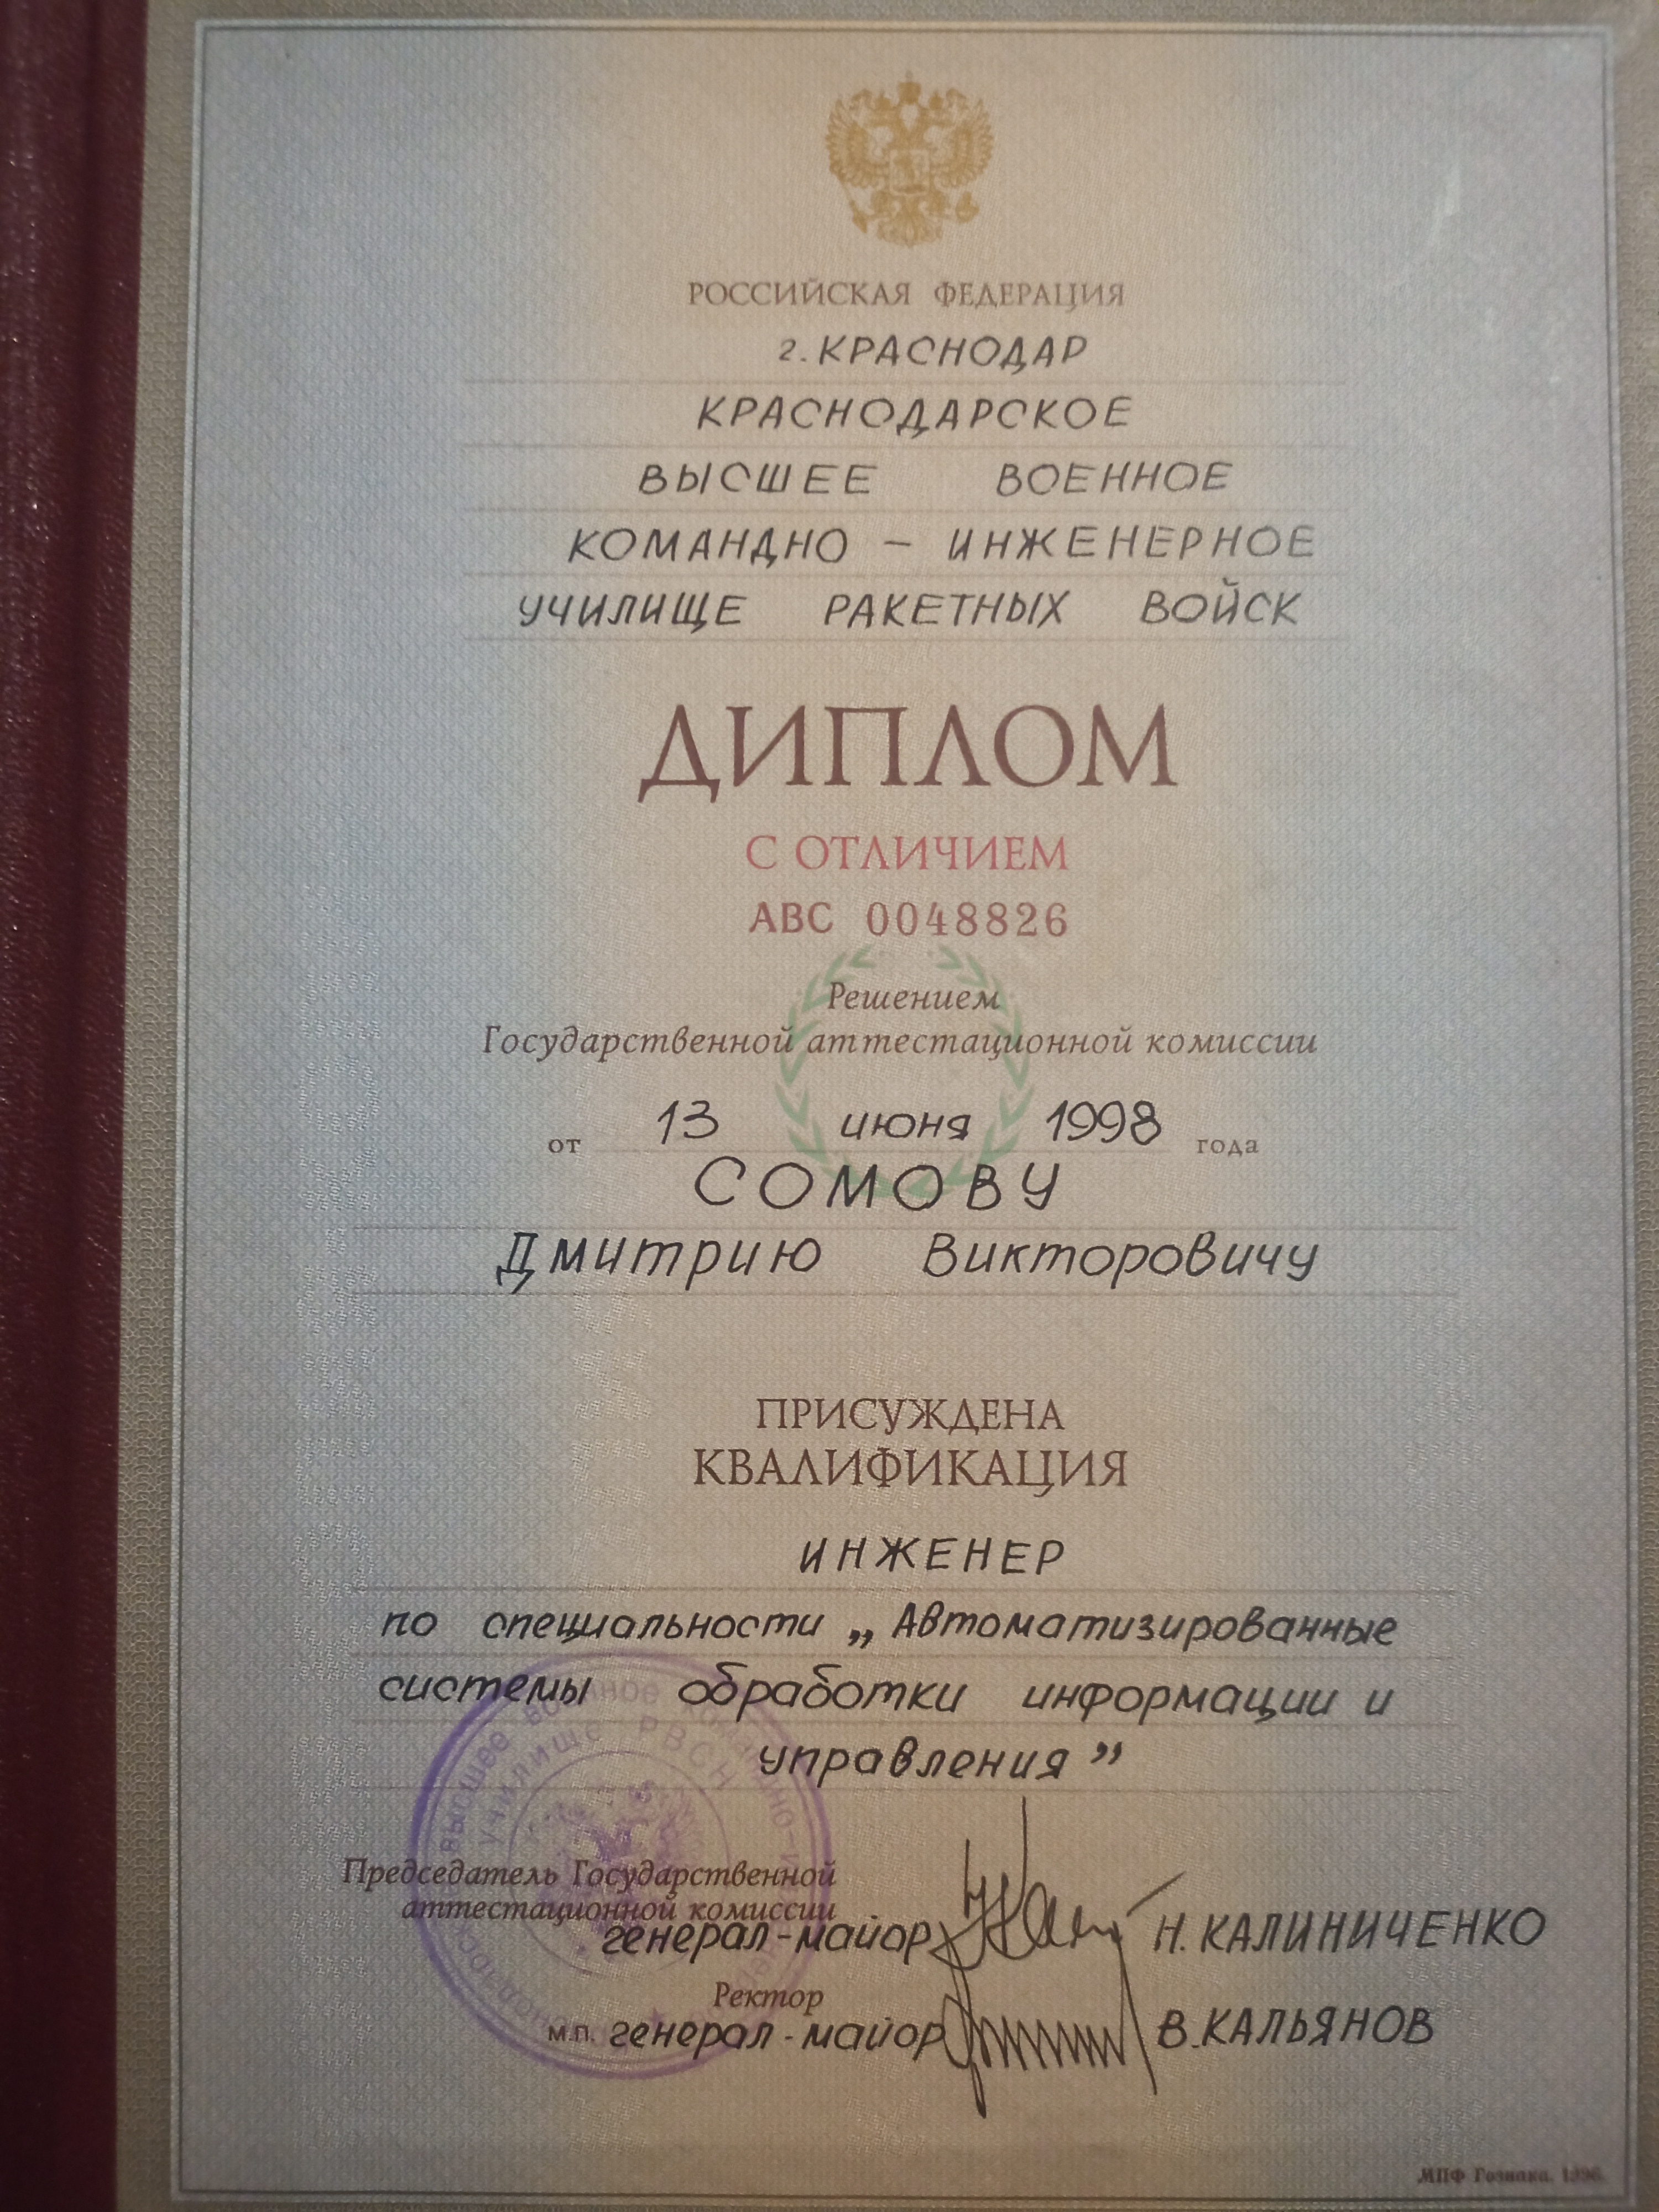 РОССИЙСКАЯ ФЕДЕРАЦИЯ
г. КРАСНОДАР
КРАСНОДАРСКОЕ
ВЫСШЕЕ ВОЕННОЕ
КОМАНДНО - ИНЖЕНЕРНОЕ
УЧИЛИЩЕ РАКЕТНЫХ ВОЙСК
ДИПЛОМ
С ОТЛИЧИЕМ
АВС 0048826
Решением
Государственной аттестационной комиссии
от 13 июня 1998 года
СОМОВУ
Дмитрию Викторовичу
ПРИСУЖДЕНА
КВАЛИФИКАЦИЯ
ИНЖЕНЕР
по специальности „Автоматизированные
системы обработки информации и
управления”
Председатель Государственной
аттестационной комиссии
генерал-майор Н. КАЛИНИЧЕНКО
Ректор
М.П. генерал-майор В. КАЛЬЯНОВ
высшее военное
училище РВСН
МПФ Гознака. 1996.